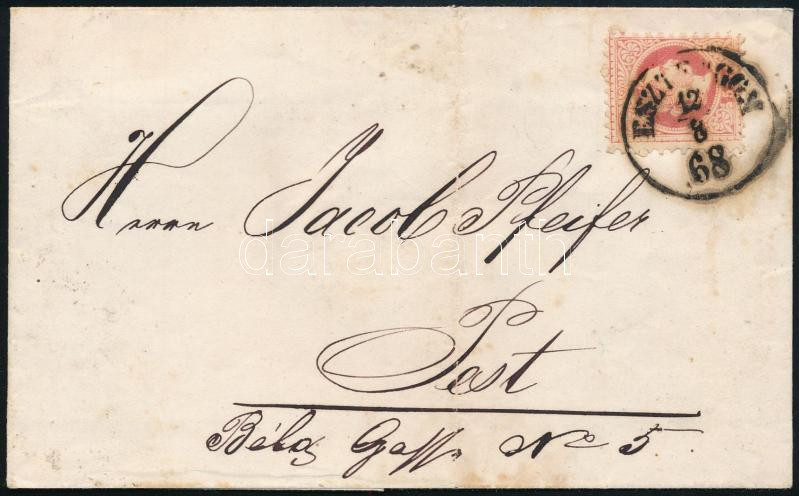 ESZTERGOM
12
8
68
Herrn Jacob Pfeifer
darabanth
Pest
Béla Gasse No 5.